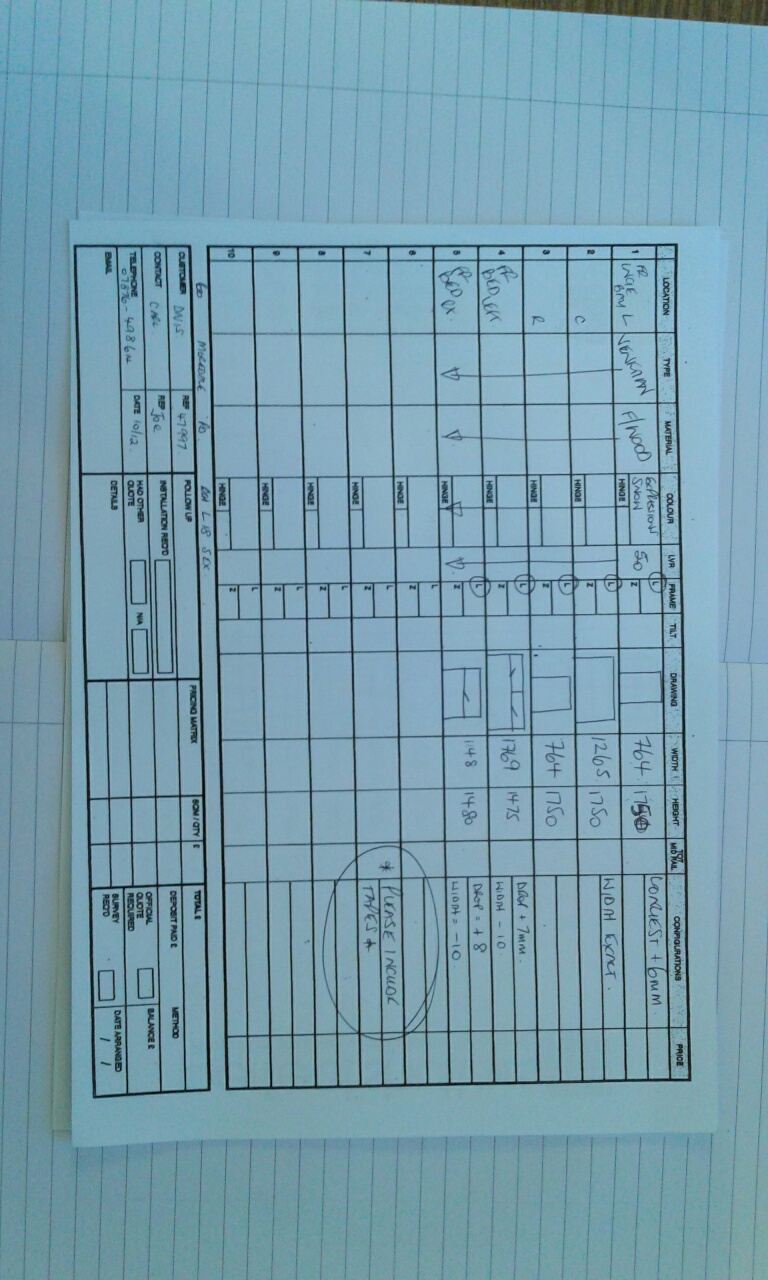 LOCATION TYPE MATERIAL COLOUR LVR FRAME TILT DRAWING WIDTH HEIGHT TOT MID RAIL CONFIGURATIONS PRICE
1 FR BAY L VENETIAN F/WOOD SNOW HINGE 50 L Z 764 LONGEST + 6MM.
2 C HINGE L Z 1265 1750 WIDTH EXACT.
3 R HINGE L Z 764 1750
4 FR BED LEFT HINGE L Z 1769 1475 DROP + 7MM.
WIDTH - 10
5 FR BED HINGE L Z 1148 1480 DROP = + 8
WIDTH = -10
6 HINGE L Z
7 HINGE L Z
8 HINGE L Z
9 HINGE L Z
10 HINGE L Z
* PLEASE INCLUDE
TAPES *
60
CUSTOMER DAVIS REF 47997 FOLLOW UP PRICING MATRIX SQM / QTY £ TOTAL £
CONTACT CARL REP JOE INSTALLATION REQ'D DEPOSIT PAID £ METHOD
TELEPHONE DATE 10/12 HAD OTHER QUOTE N/A OFFICIAL QUOTE REQUIRED BALANCE £
EMAIL DETAILS SURVEY REQ'D DATE ARRANGED / /